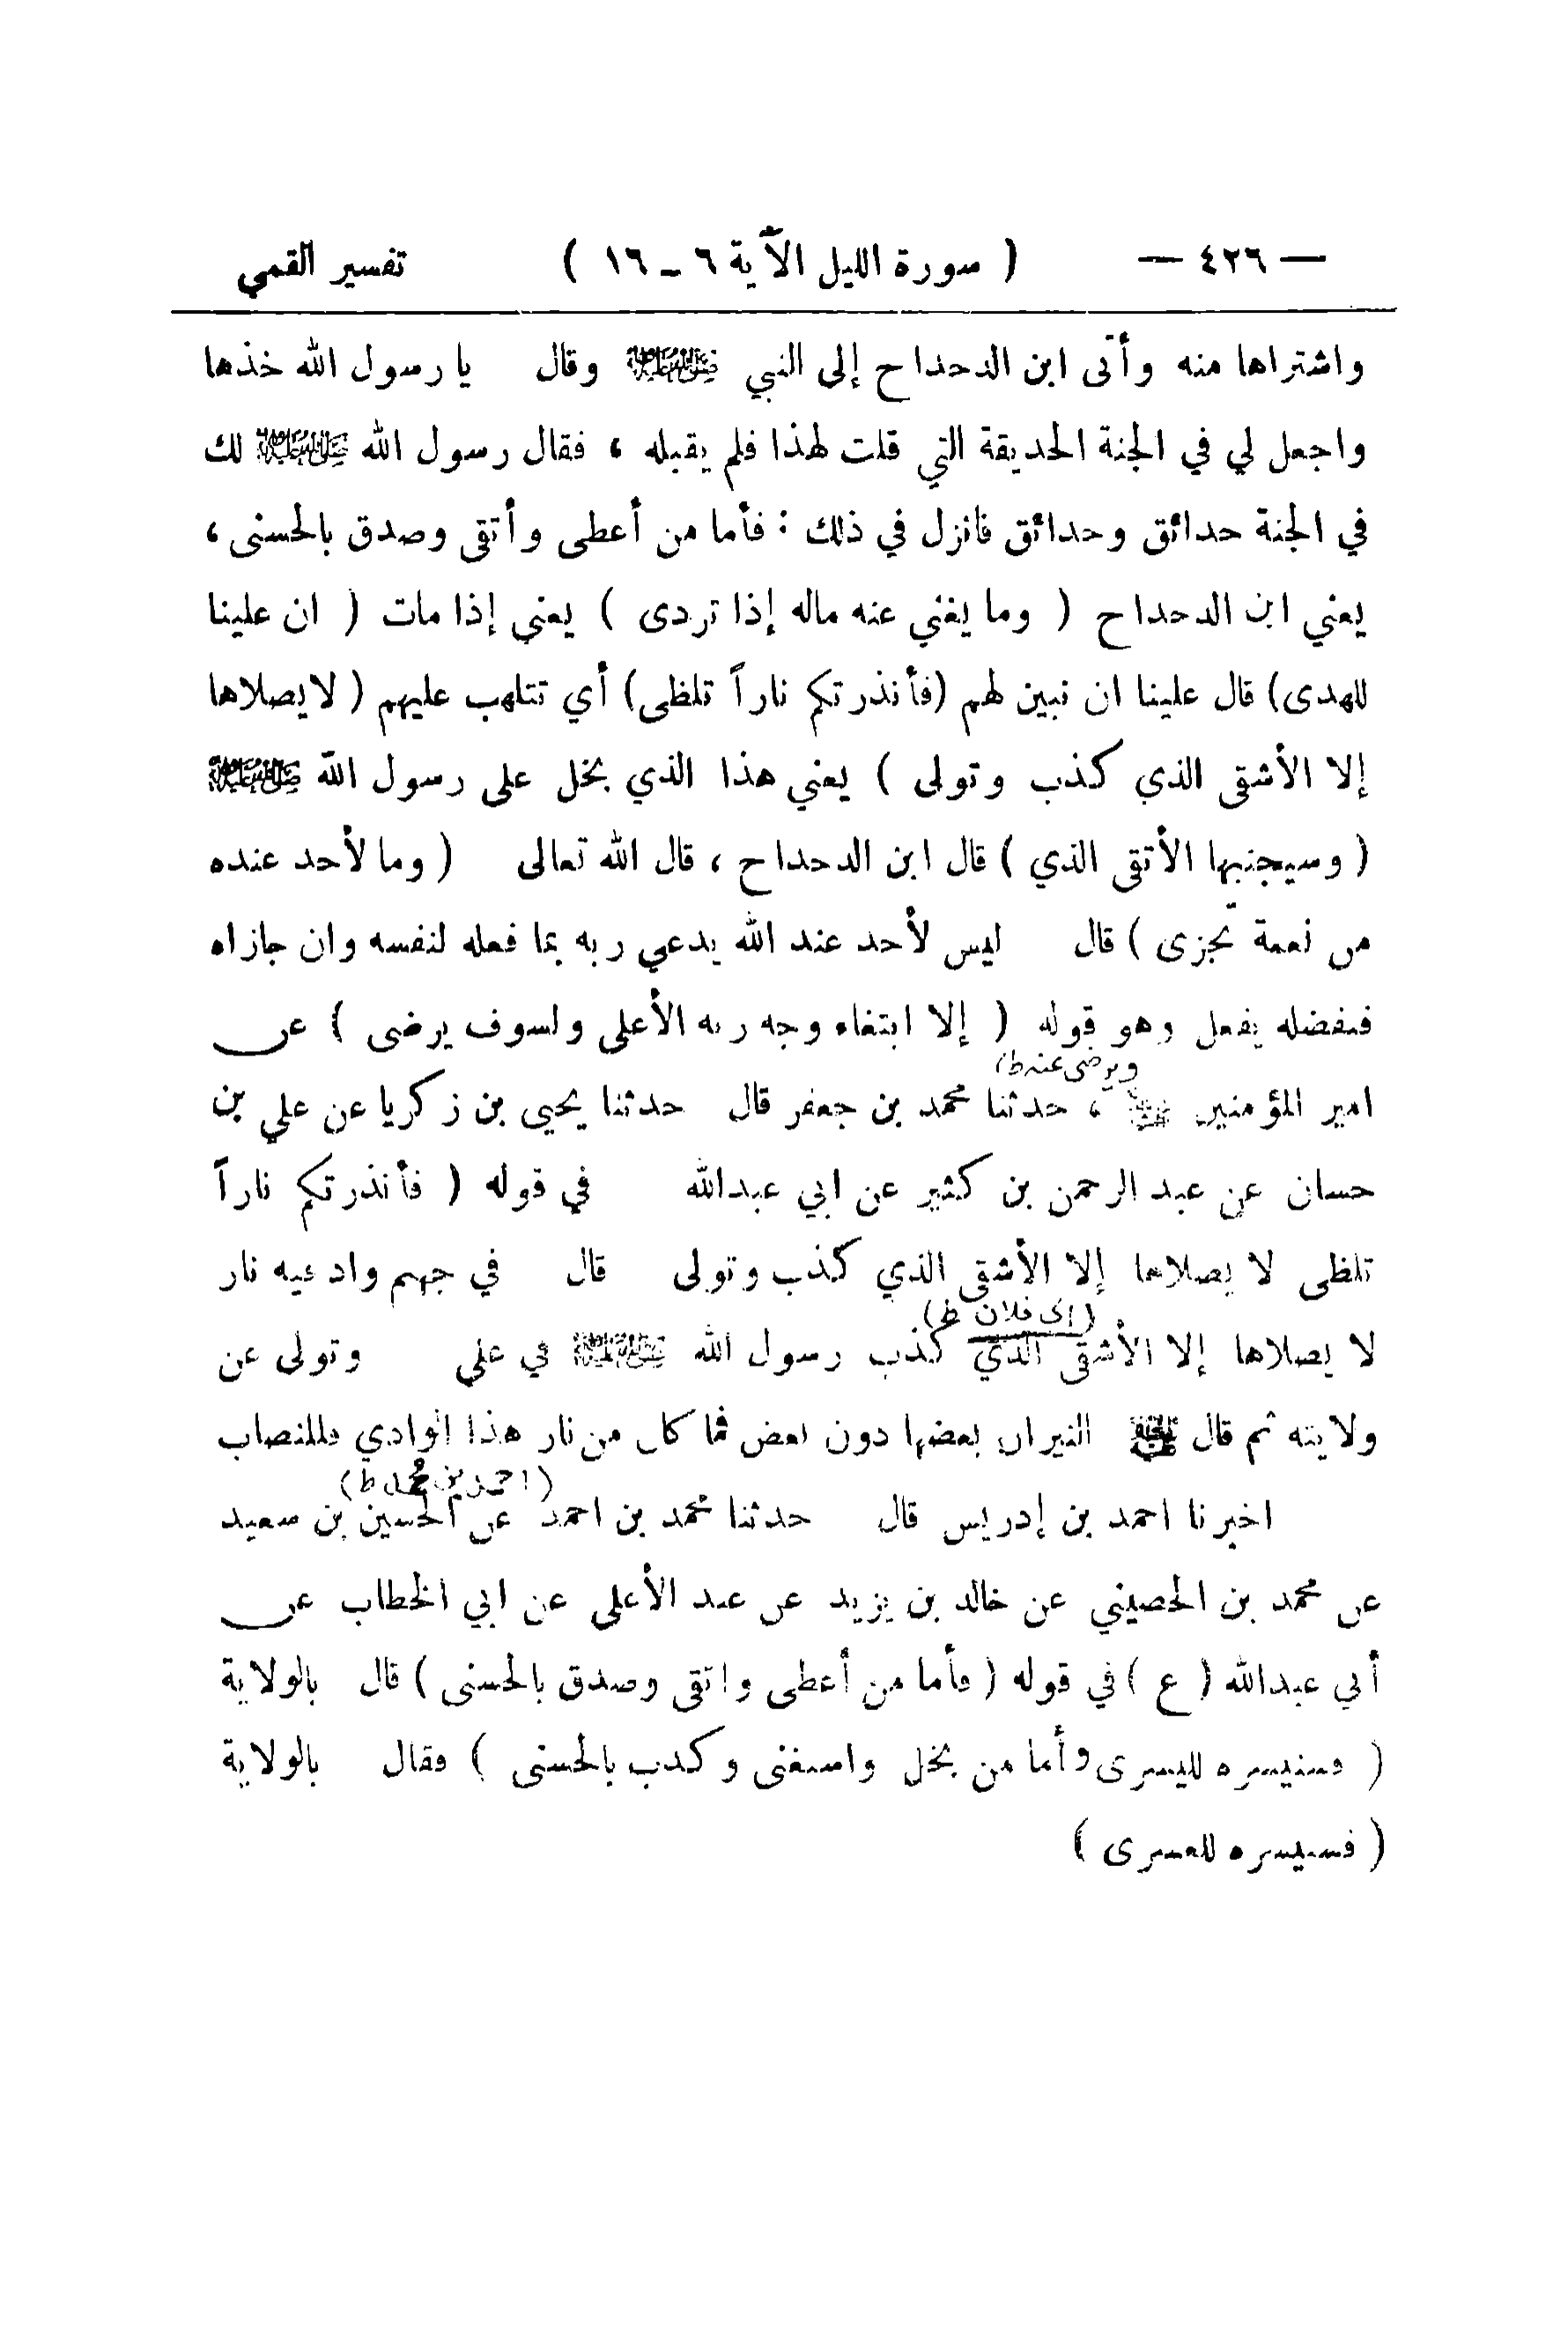 — ٤٢٦ — ( سورة الليل الآية ٦ ـ ١٦ ) تفسير القمي
واشتراها منه وأتى ابن الدحداح إلى النبي ﷺ وقال يا رسول الله خذها
واجعل لي في الجنة الحديقة التي قلت لهذا فلم يقبله ، فقال رسول الله ﷺ لك
في الجنة حدائق وحدائق فانزل في ذلك : فأما من أعطى وأتقى وصدق بالحسنى ،
يعني ابن الدحداح ( وما يغني عنه ماله إذا تردى ) يعني إذا مات ( ان علينا
للهدى) قال علينا ان نبين لهم (فأنذرتكم ناراً تلظى) أي تتلهب عليهم ( لا يصلاها
إلا الأشقى الذي كذب وتولى ) يعني هذا الذي بخل على رسول الله ﷺ
( وسيجنبها الأتقى الذي ) قال ابن الدحداح ، قال الله تعالى ( وما لأحد عنده
من نعمة تجزى ) قال ليس لأحد عند الله يدعي ربه بما فعله لنفسه وان جازاه
فبفضله يفعل وهو قوله ( إلا ابتغاء وجه ربه الأعلى ولسوف يرضى ) عن
ويرضى عنه ط)
امير المؤمنين ، حدثنا محمد بن جعفر قال حدثنا يحيى بن زكريا عن علي بن
حسان عن عبد الرحمن بن كثير عن ابي عبدالله في قوله ( فأنذرتكم ناراً
تلظى لا يصلاها إلا الأشقى الذي كذب وتولى قال في جهنم واد فيه نار
(اي فلان ط)
لا يصلاها إلا الأشقى الذي كذب رسول الله ﷺ في علي وتولى عن
ولايته ثم قال النيران بعضها دون بعض فما كان من نار هذا الوادي فللنصاب
(احمد بن محمد ط)
اخبرنا احمد بن إدريس قال حدثنا محمد بن احمد عن الحسين بن سعيد
عن محمد بن الحصيني عن خالد بن يزيد عن عبد الأعلى عن ابي الخطاب عن
أبي عبدالله ( ع ) في قوله ( فأما من أعطى واتقى وصدق بالحسنى ) قال بالولاية
( فسنيسره لليسرى وأما من بخل واستغنى وكذب بالحسنى ) فقال بالولاية
( فسنيسره للعسرى )